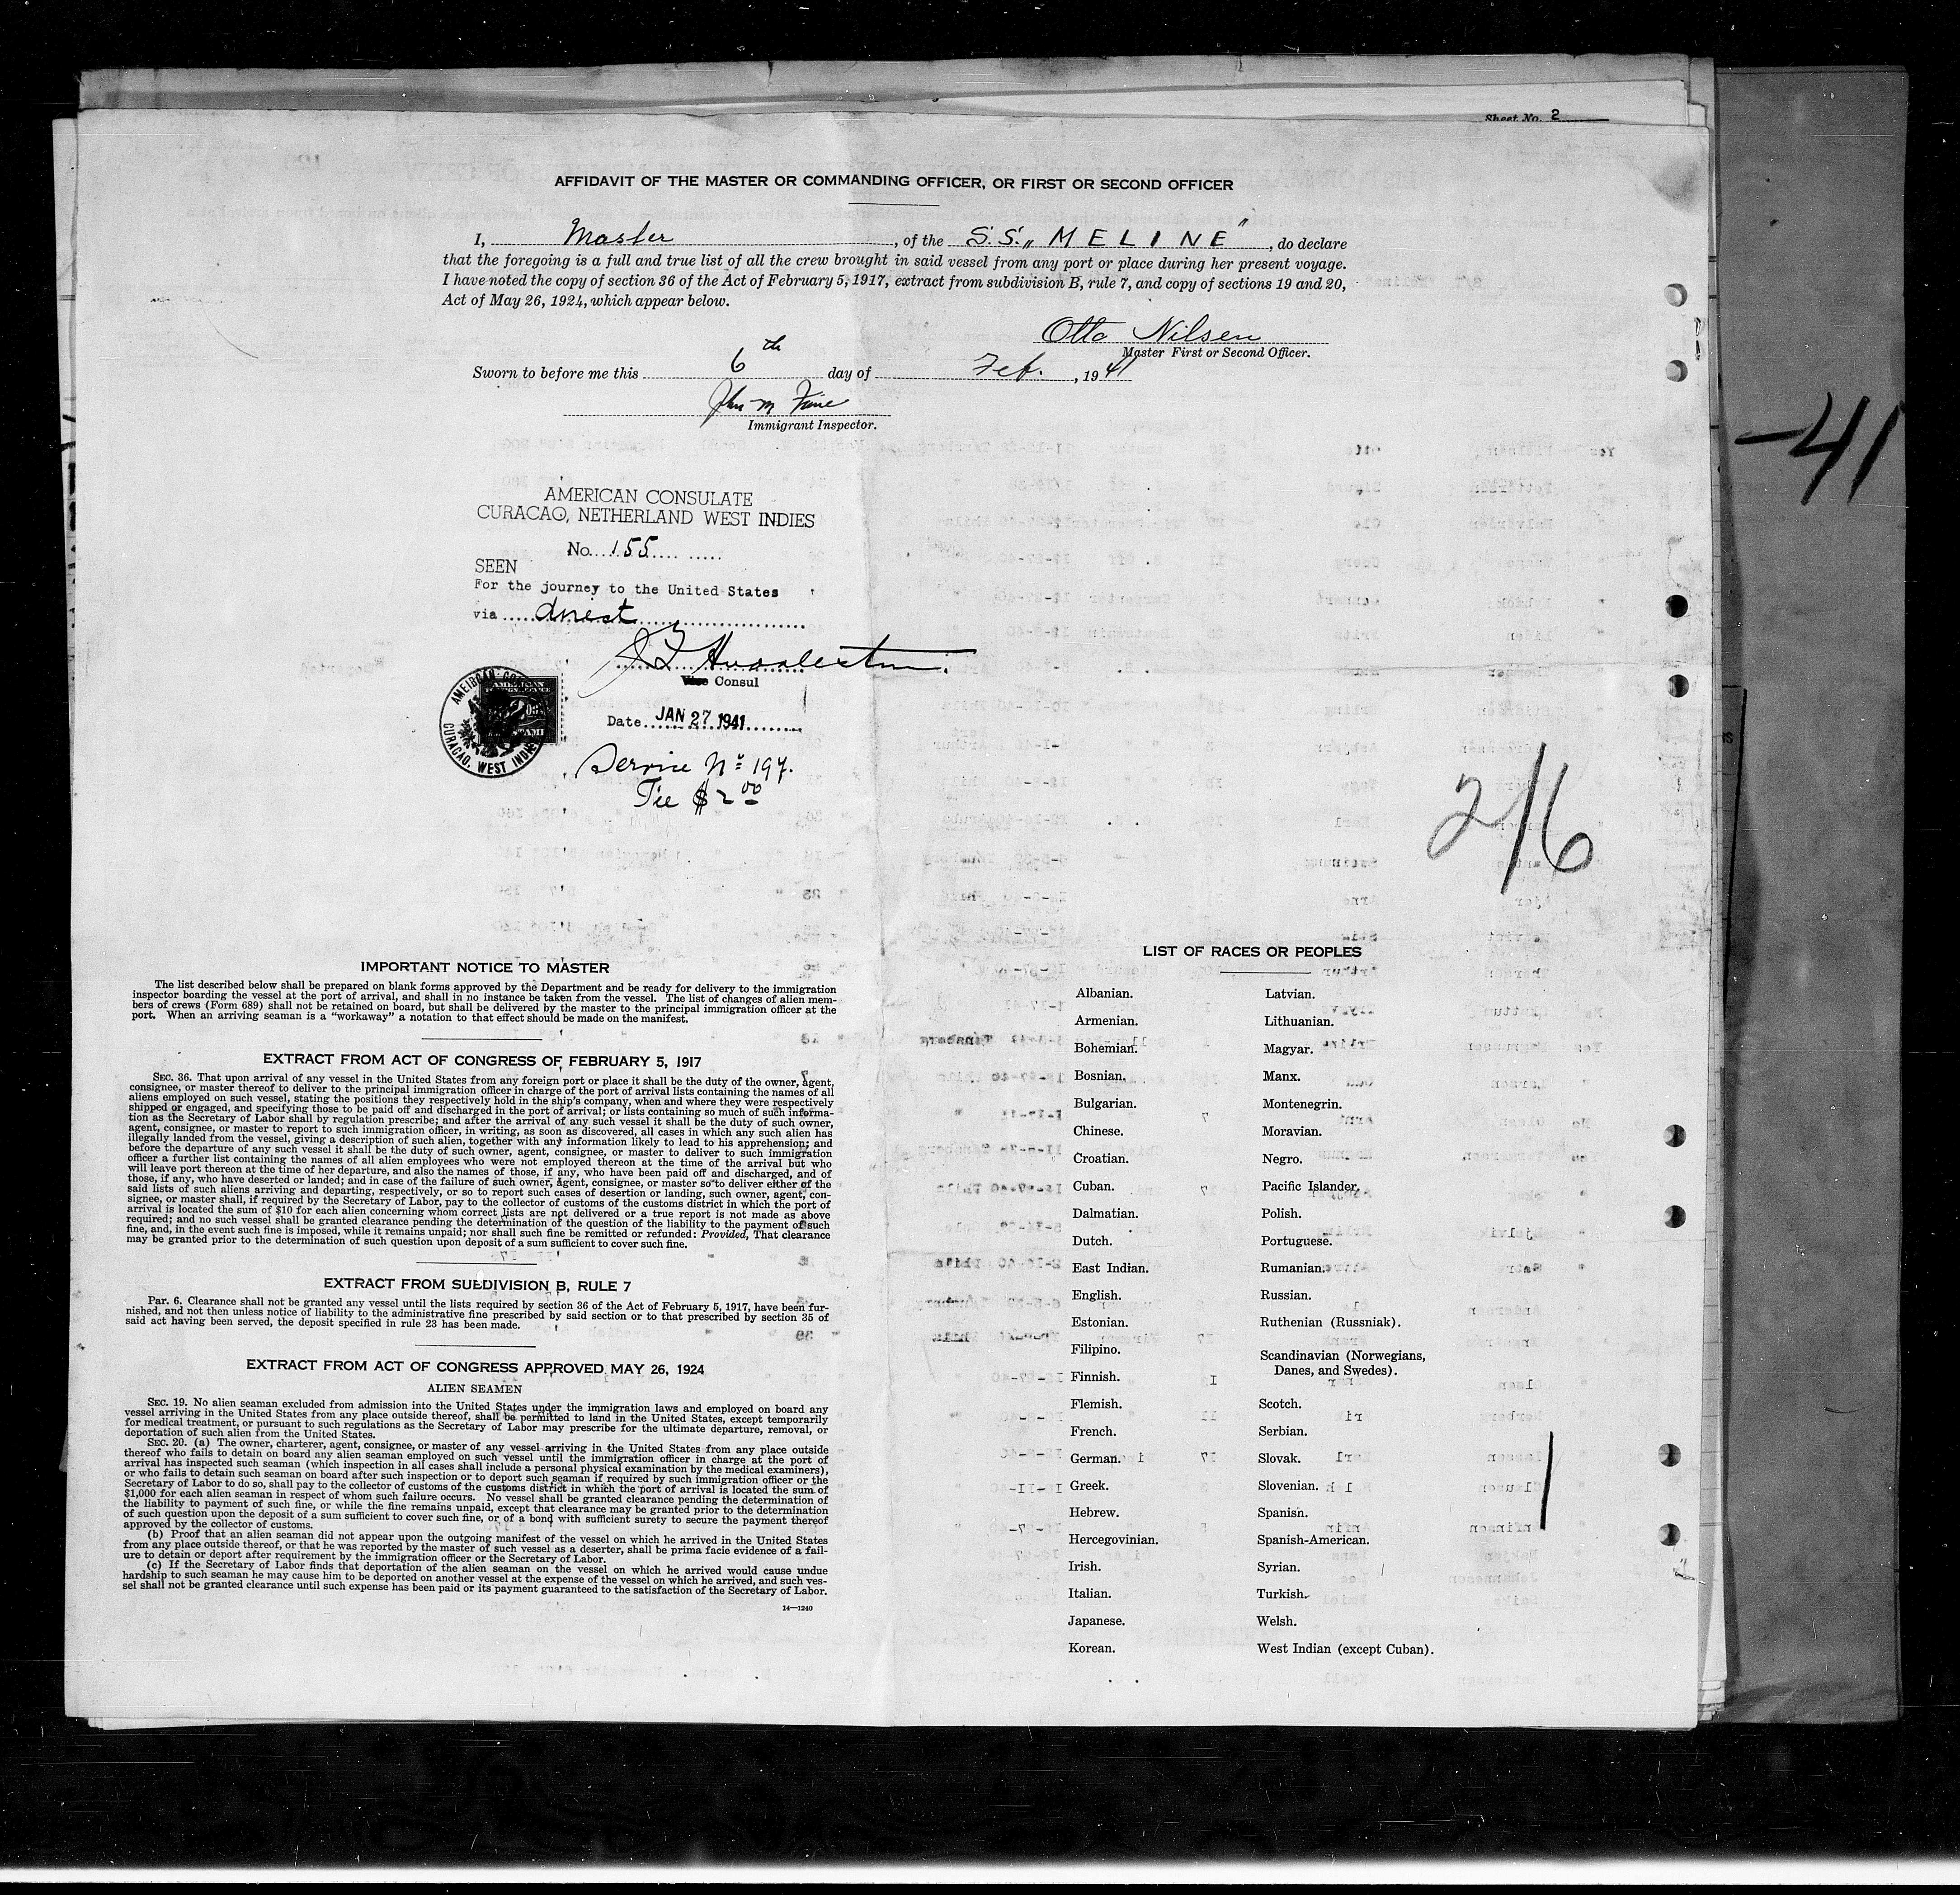 Sheet No. 2
AFFIDAVIT OF THE MASTER OR COMMANDING OFFICER, OR FIRST OR SECOND OFFICER
I, Master, of the S.S. „MELINE", do declare
that the foregoing is a full and true list of all the crew brought in said vessel from any port or place during her present voyage.
I have noted the copy of section 36 of the Act of February 5, 1917, extract from subdivision B, rule 7, and copy of sections 19 and 20,
Act of May 26, 1924, which appear below.
Otto Nilsen
Master First or Second Officer.
Sworn to before me this 6th day of Feb., 1941
John M
Immigrant Inspector.
-41
AMERICAN CONSULATE
CURACAO, NETHERLAND WEST INDIES
No. 155
SEEN
For the journey to the United States
via direct
Vice Consul
AMERICAN
CURACAO, WEST INDIES
Date JAN 27 1941
Service Nº 197.
Fee $2.00
2/6
IMPORTANT NOTICE TO MASTER
The list described below shall be prepared on blank forms approved by the Department and be ready for delivery to the immigration
inspector boarding the vessel at the port of arrival, and shall in no instance be taken from the vessel. The list of changes of alien mem-
bers of crews (Form 689) shall not be retained on board, but shall be delivered by the master to the principal immigration officer at the
port. When an arriving seaman is a "workaway" a notation to that effect should be made on the manifest.
EXTRACT FROM ACT OF CONGRESS OF FEBRUARY 5, 1917
SEC. 36. That upon arrival of any vessel in the United States from any foreign port or place it shall be the duty of the owner, agent,
consignee, or master thereof to deliver to the principal immigration officer in charge of the port of arrival lists containing the names of all
aliens employed on such vessel, stating the positions they respectively hold in the ship's company, when and where they were respectively
shipped or engaged, and specifying those to be paid off and discharged in the port of arrival; or lists containing so much of such informa-
tion as the Secretary of Labor shall by regulation prescribe; and after the arrival of any such vessel it shall be the duty of such owner,
agent, consignee, or master to report to such immigration officer, in writing, as soon as discovered, all cases in which any such alien has
illegally landed from the vessel, giving a description of such alien, together with any information likely to lead to his apprehension; and
before the departure of any such vessel it shall be the duty of such owner, agent, consignee, or master to deliver to such immigration
officer a further list containing the names of all alien employees who were not employed thereon at the time of the arrival but who
will leave port thereon at the time of her departure, and also the names of those, if any, who have been paid off and discharged, and of
those, if any, who have deserted or landed; and in case of the failure of such owner, agent, consignee, or master so to deliver either of the
said lists of such aliens arriving and departing, respectively, or so to report such cases of desertion or landing, such owner, agent, con-
signee, or master shall, if required by the Secretary of Labor, pay to the collector of customs of the customs district in which the port of
arrival is located the sum of $10 for each alien concerning whom correct lists are not delivered or a true report is not made as above
required; and no such vessel shall be granted clearance pending the determination of the question of the liability to the payment of such
fine, and, in the event such fine is imposed, while it remains unpaid; nor shall such fine be remitted or refunded: Provided, That clearance
may be granted prior to the determination of such question upon deposit of a sum sufficient to cover such fine.
EXTRACT FROM SUBDIVISION B, RULE 7
Par. 6. Clearance shall not be granted any vessel until the lists required by section 36 of the Act of February 5, 1917, have been fur-
nished, and not then unless notice of liability to the administrative fine prescribed by said section or to that prescribed by section 35 of
said act having been served, the deposit specified in rule 23 has been made.
EXTRACT FROM ACT OF CONGRESS APPROVED MAY 26, 1924
ALIEN SEAMEN
SEC. 19. No alien seaman excluded from admission into the United States under the immigration laws and employed on board any
vessel arriving in the United States from any place outside thereof, shall be permitted to land in the United States, except temporarily
for medical treatment, or pursuant to such regulations as the Secretary of Labor may prescribe for the ultimate departure, removal, or
deportation of such alien from the United States.
SEC. 20. (a) The owner, charterer, agent, consignee, or master of any vessel arriving in the United States from any place outside
thereof who fails to detain on board any alien seaman employed on such vessel until the immigration officer in charge at the port of
arrival has inspected such seaman (which inspection in all cases shall include a personal physical examination by the medical examiners),
or who fails to detain such seaman on board after such inspection or to deport such seaman if required by such immigration officer or the
Secretary of Labor to do so, shall pay to the collector of customs of the customs district in which the port of arrival is located the sum of
$1,000 for each alien seaman in respect of whom such failure occurs. No vessel shall be granted clearance pending the determination of
the liability to payment of such fine, or while the fine remains unpaid, except that clearance may be granted prior to the determination
of such question upon the deposit of a sum sufficient to cover such fine, or of a bond with sufficient surety to secure the payment thereof
approved by the collector of customs.
(b) Proof that an alien seaman did not appear upon the outgoing manifest of the vessel on which he arrived in the United States
from any place outside thereof, or that he was reported by the master of such vessel as a deserter, shall be prima facie evidence of a fail-
ure to detain or deport after requirement by the immigration officer or the Secretary of Labor.
(c) If the Secretary of Labor finds that deportation of the alien seaman on the vessel on which he arrived would cause undue
hardship to such seaman he may cause him to be deported on another vessel at the expense of the vessel on which he arrived, and such ves-
sel shall not be granted clearance until such expense has been paid or its payment guaranteed to the satisfaction of the Secretary of Labor.
14—1240
LIST OF RACES OR PEOPLES
Albanian.
Armenian.
Bohemian.
Bosnian.
Bulgarian.
Chinese.
Croatian.
Cuban.
Dalmatian.
Dutch.
East Indian.
English.
Estonian.
Filipino.
Finnish.
Flemish.
French.
German.
Greek.
Hebrew.
Hercegovinian.
Irish.
Italian.
Japanese.
Korean.
Latvian.
Lithuanian.
Magyar.
Manx.
Montenegrin.
Moravian.
Negro.
Pacific Islander.
Polish.
Portuguese.
Rumanian.
Russian.
Ruthenian (Russniak).
Scandinavian (Norwegians,
Danes, and Swedes).
Scotch.
Serbian.
Slovak.
Slovenian.
Spanish.
Spanish-American.
Syrian.
Turkish.
Welsh.
West Indian (except Cuban).